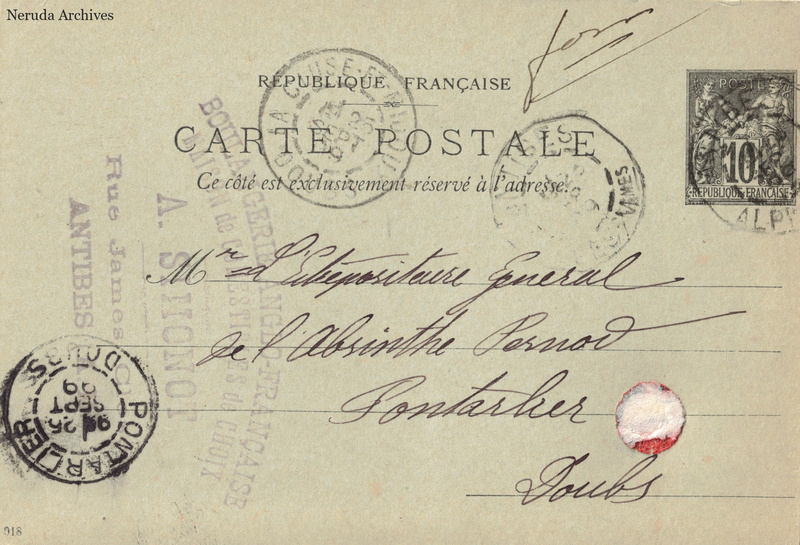 Neruda Archives
RÉPUBLIQUE FRANÇAISE
CARTE POSTALE
Ce côté est exclusivement réservé à l'adresse.
POSTE
10
RÉPUBLIQUE FRANÇAISE
ANTIBES
ALP
Mr L'Entrepositaire General
de l'Absinthe Pernod
Pontarlier
Doubs
BOULANGERIE ANGLO-FRANÇAISE
PAIN de & PESTRIES de CHOIX
A. SIMONOT
Rue James
ANTIBES
PONTARLIER
25
SEPT
99
DOUBS
918